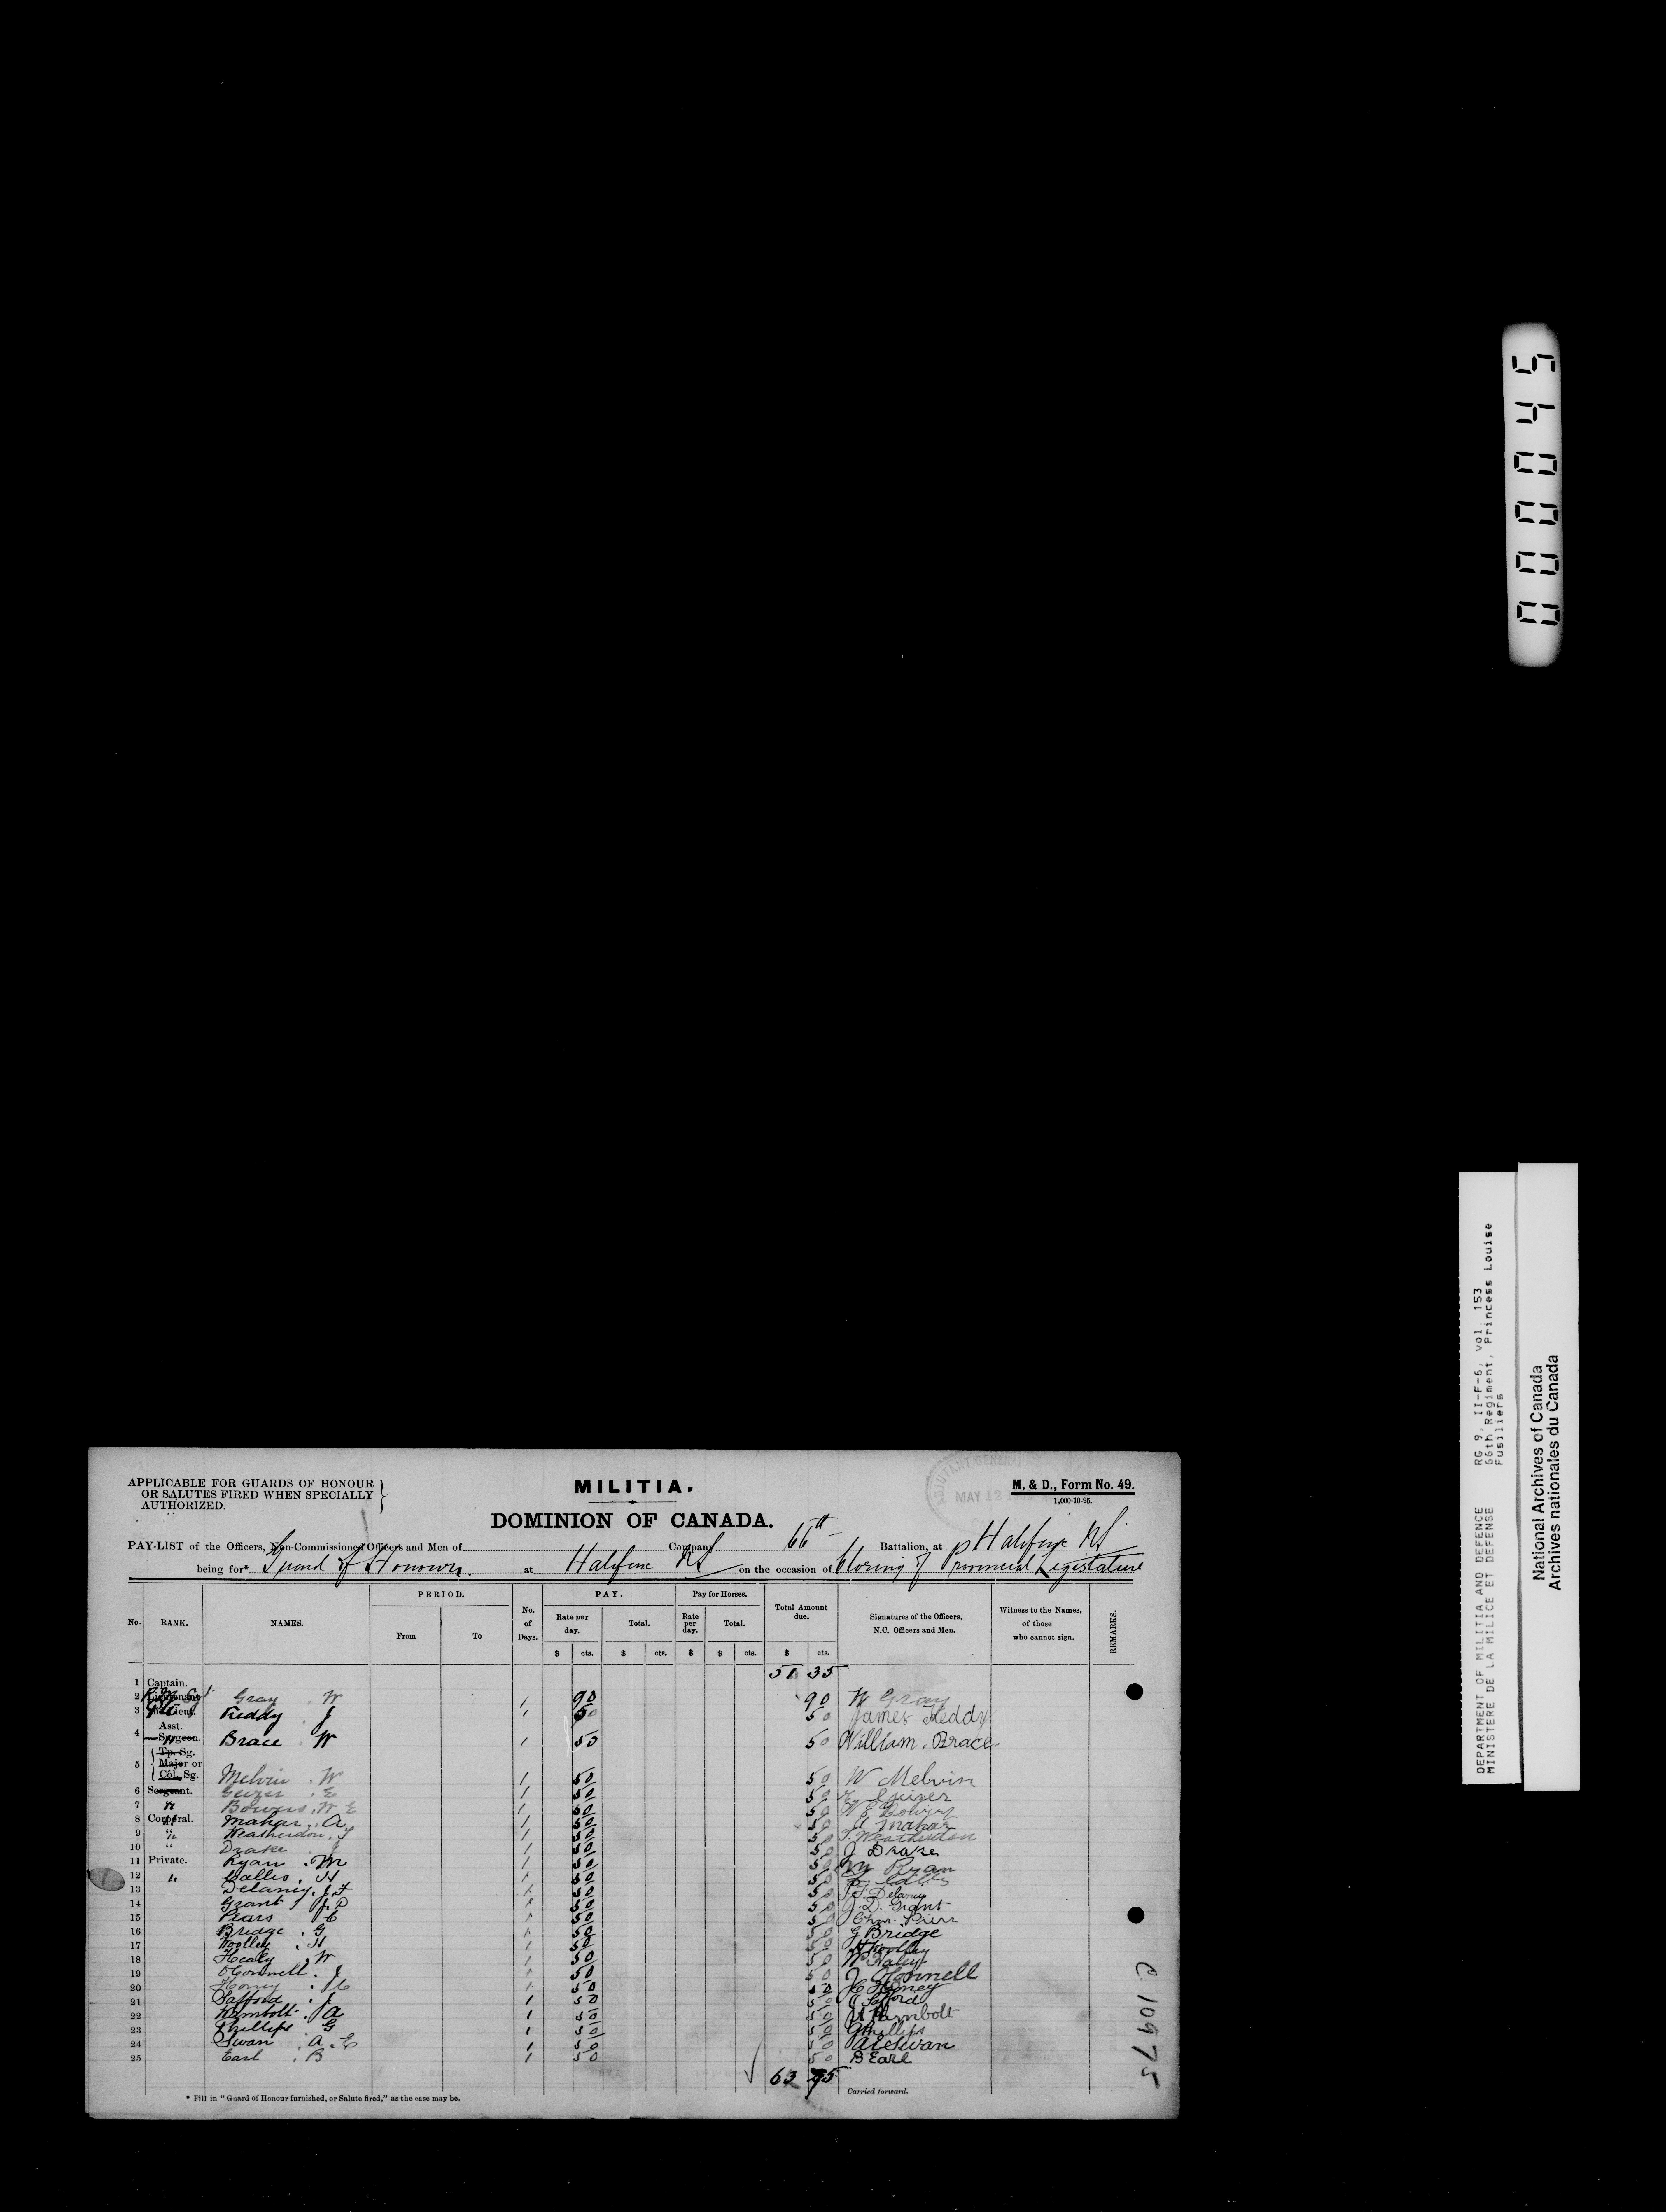 54000
DEPARTMENT OF MILITIA AND DEFENCE RG 9, II-F-6, vol. 153
MINISTERE DE LA MILICE ET DEFENSE 66th Regiment, Princess Louise
Fusiliers
National Archives of Canada
Archives nationales du Canada
APPLICABLE FOR GUARDS OF HONOUR
OR SALUTES FIRED WHEN SPECIALLY
AUTHORIZED.
MILITIA.
DOMINION OF CANADA.
ADJUTANT GENERAL MAY 12
M. & D., Form No. 49.
1,000-10-95.
PAY-LIST of the Officers, Non-Commissioned Officers and Men of Company 66th Battalion, at Halifax NS
being for* Guard of Honour. at Halifax NS on the occasion of Closing of Provincial Legislature
No. RANK. NAMES. PERIOD. From To No. of Days. PAY. Rate per day. $ cts. Total. $ cts. Pay for Horses. Rate per day. $ Total. $ cts. Total Amount due. $ cts. Signatures of the Officers, N.C. Officers and Men. Witness to the Names, of those who cannot sign. REMARKS.
51 35
1 Captain.
2 Lieutenant Gray . W 1 90 90 W Gray
3 Keddy . J 1 50 50 James Keddy
4 Asst. Surgeon. Brace . W 1 50 50 William. Brace
5 Tp. Sg. Major or Col. Sg. Melvin . W 1 50 50 W Melvin
6 Sergeant. Geizer . E 1 50 50 E Geizer
7 " Bowers . W E 1 50 50 W E Bowers
8 Corporal. Mahar . A 1 50 50 A Mahar
9 " Weatherdon . T 1 50 50 T. Weatherdon
10 " Drake J 1 50 50 J Drake
11 Private. Ryan . M 1 50 50 M Ryan
12 " Collis . H 1 50 50
13 Delaney. J F 1 50 50 J F Delaney
14 Grant J D 1 50 50 J. D. Grant
15 Pears C 1 50 50 Chas. Piers
16 Bridge . G 1 50 50 G Bridge
17 Woolley . H 1 50 50 H Woolley
18 Healy . W 1 50 50 W Healy
19 OConnell . J 1 50 50 J OConnell
20 Horney . C 1 50 50 C Horney
21 Safford . J 1 50 50 J Safford
22 Humbolt . A 1 50 50 A Humbolt
23 Phillips . G 1 50 50 G Phillips
24 Swan . A . E 1 50 50 A E Swan
25 Earl . B 1 50 50 B Earl
63 75
Carried forward.
* Fill in "Guard of Honour furnished, or Salute fired," as the case may be.
C 10975